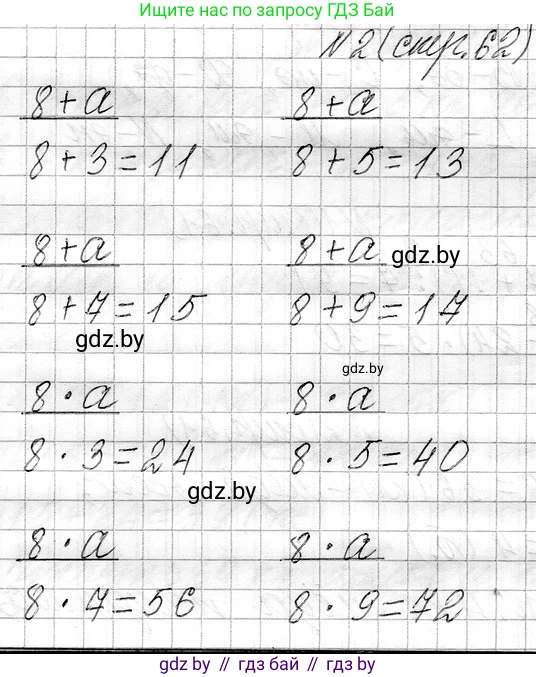 Ищите нас по запросу ГДЗ Бай
№2 (стр.62)
8 + a 8 + a
8 + 3 = 11 8 + 5 = 13
8 + a 8 + a gdz.by
8 + 7 = 15 8 + 9 = 17
gdz.by
gdz.by
8 · a 8 · a
8 · 3 = 24 8 · 5 = 40
gdz.by
8 · a 8 · a
8 · 7 = 56 8 · 9 = 72
gdz.by // гдз бай // gdz.by